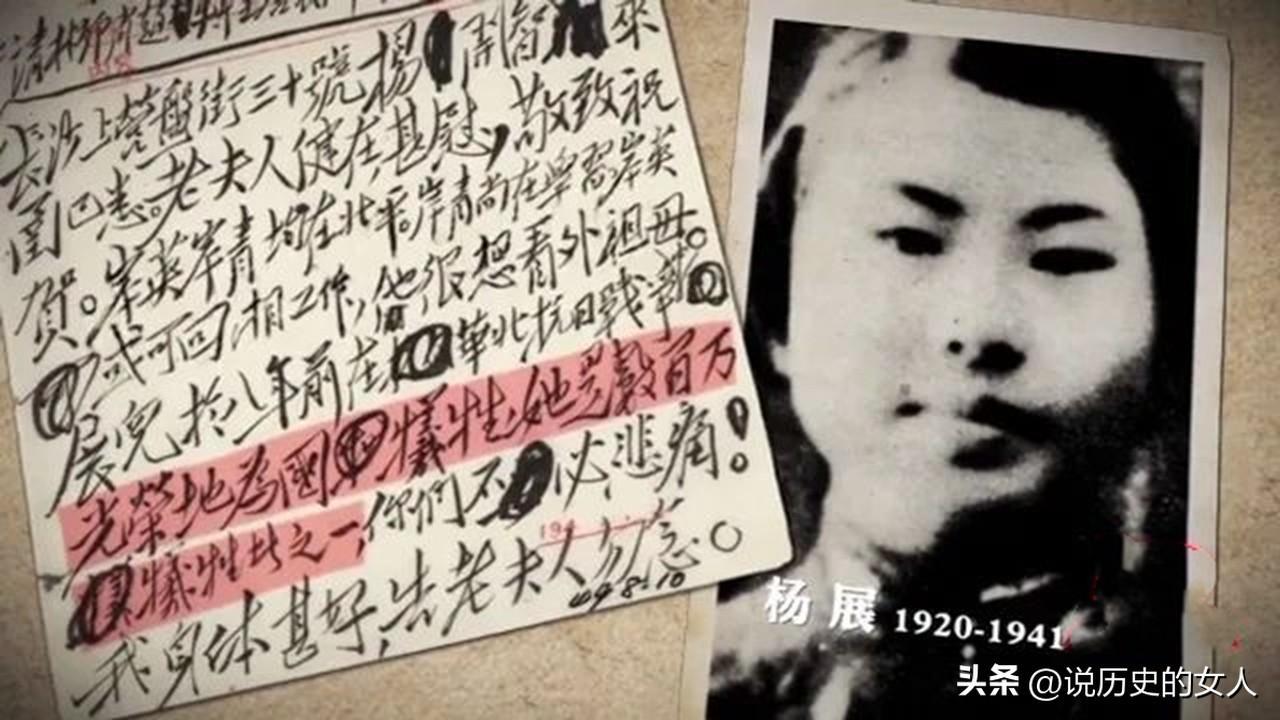 长沙上營盤街三十號楊開智來
函已悉。老夫人健在,甚慰,敬致祝
賀。岸英岸青均在北平。岸青尚在學習。岸英
或可回湘工作,他很想看外祖母。
展兒於八年前在華北抗日戰爭
光榮地為國犧牲,她是數百万
犧牲者之一,你們不必悲痛!
我身体甚好,告老夫人勿念。
49.8.10
杨展 1920-1941
头条 @说历史的女人